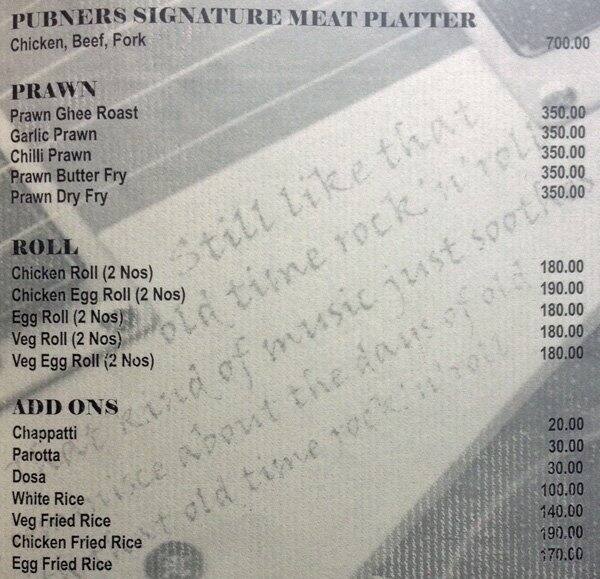 PUBNERS SIGNATURE MEAT PLATTER
Chicken, Beef, Fork 700.00
PRAWN
Prawn Ghee Roast 350.00
Garlic Prawn 350.00
Chilli Prawn 350.00
Prawn Butter Fry 350.00
Prawn Dry Fry 350.00
ROLL
Chicken Roll (2 Nos) 180.00
Chicken Egg Roll (2 Nos) 190.00
Egg Roll (2 Nos) 180.00
Veg Roll (2 Nos) 180.00
Veg Egg Roll (2 Nos) 180.00
ADD ONS
Chappatti 20.00
Parotta 30.00
Dosa 30.00
White Rice 100.00
Veg Fried Rice 140.00
Chicken Fried Rice 190.00
Egg Fried Rice 170.00
Still like that
old time rock 'n' roll
kind of music just
about the days of old
old time rock 'n' roll